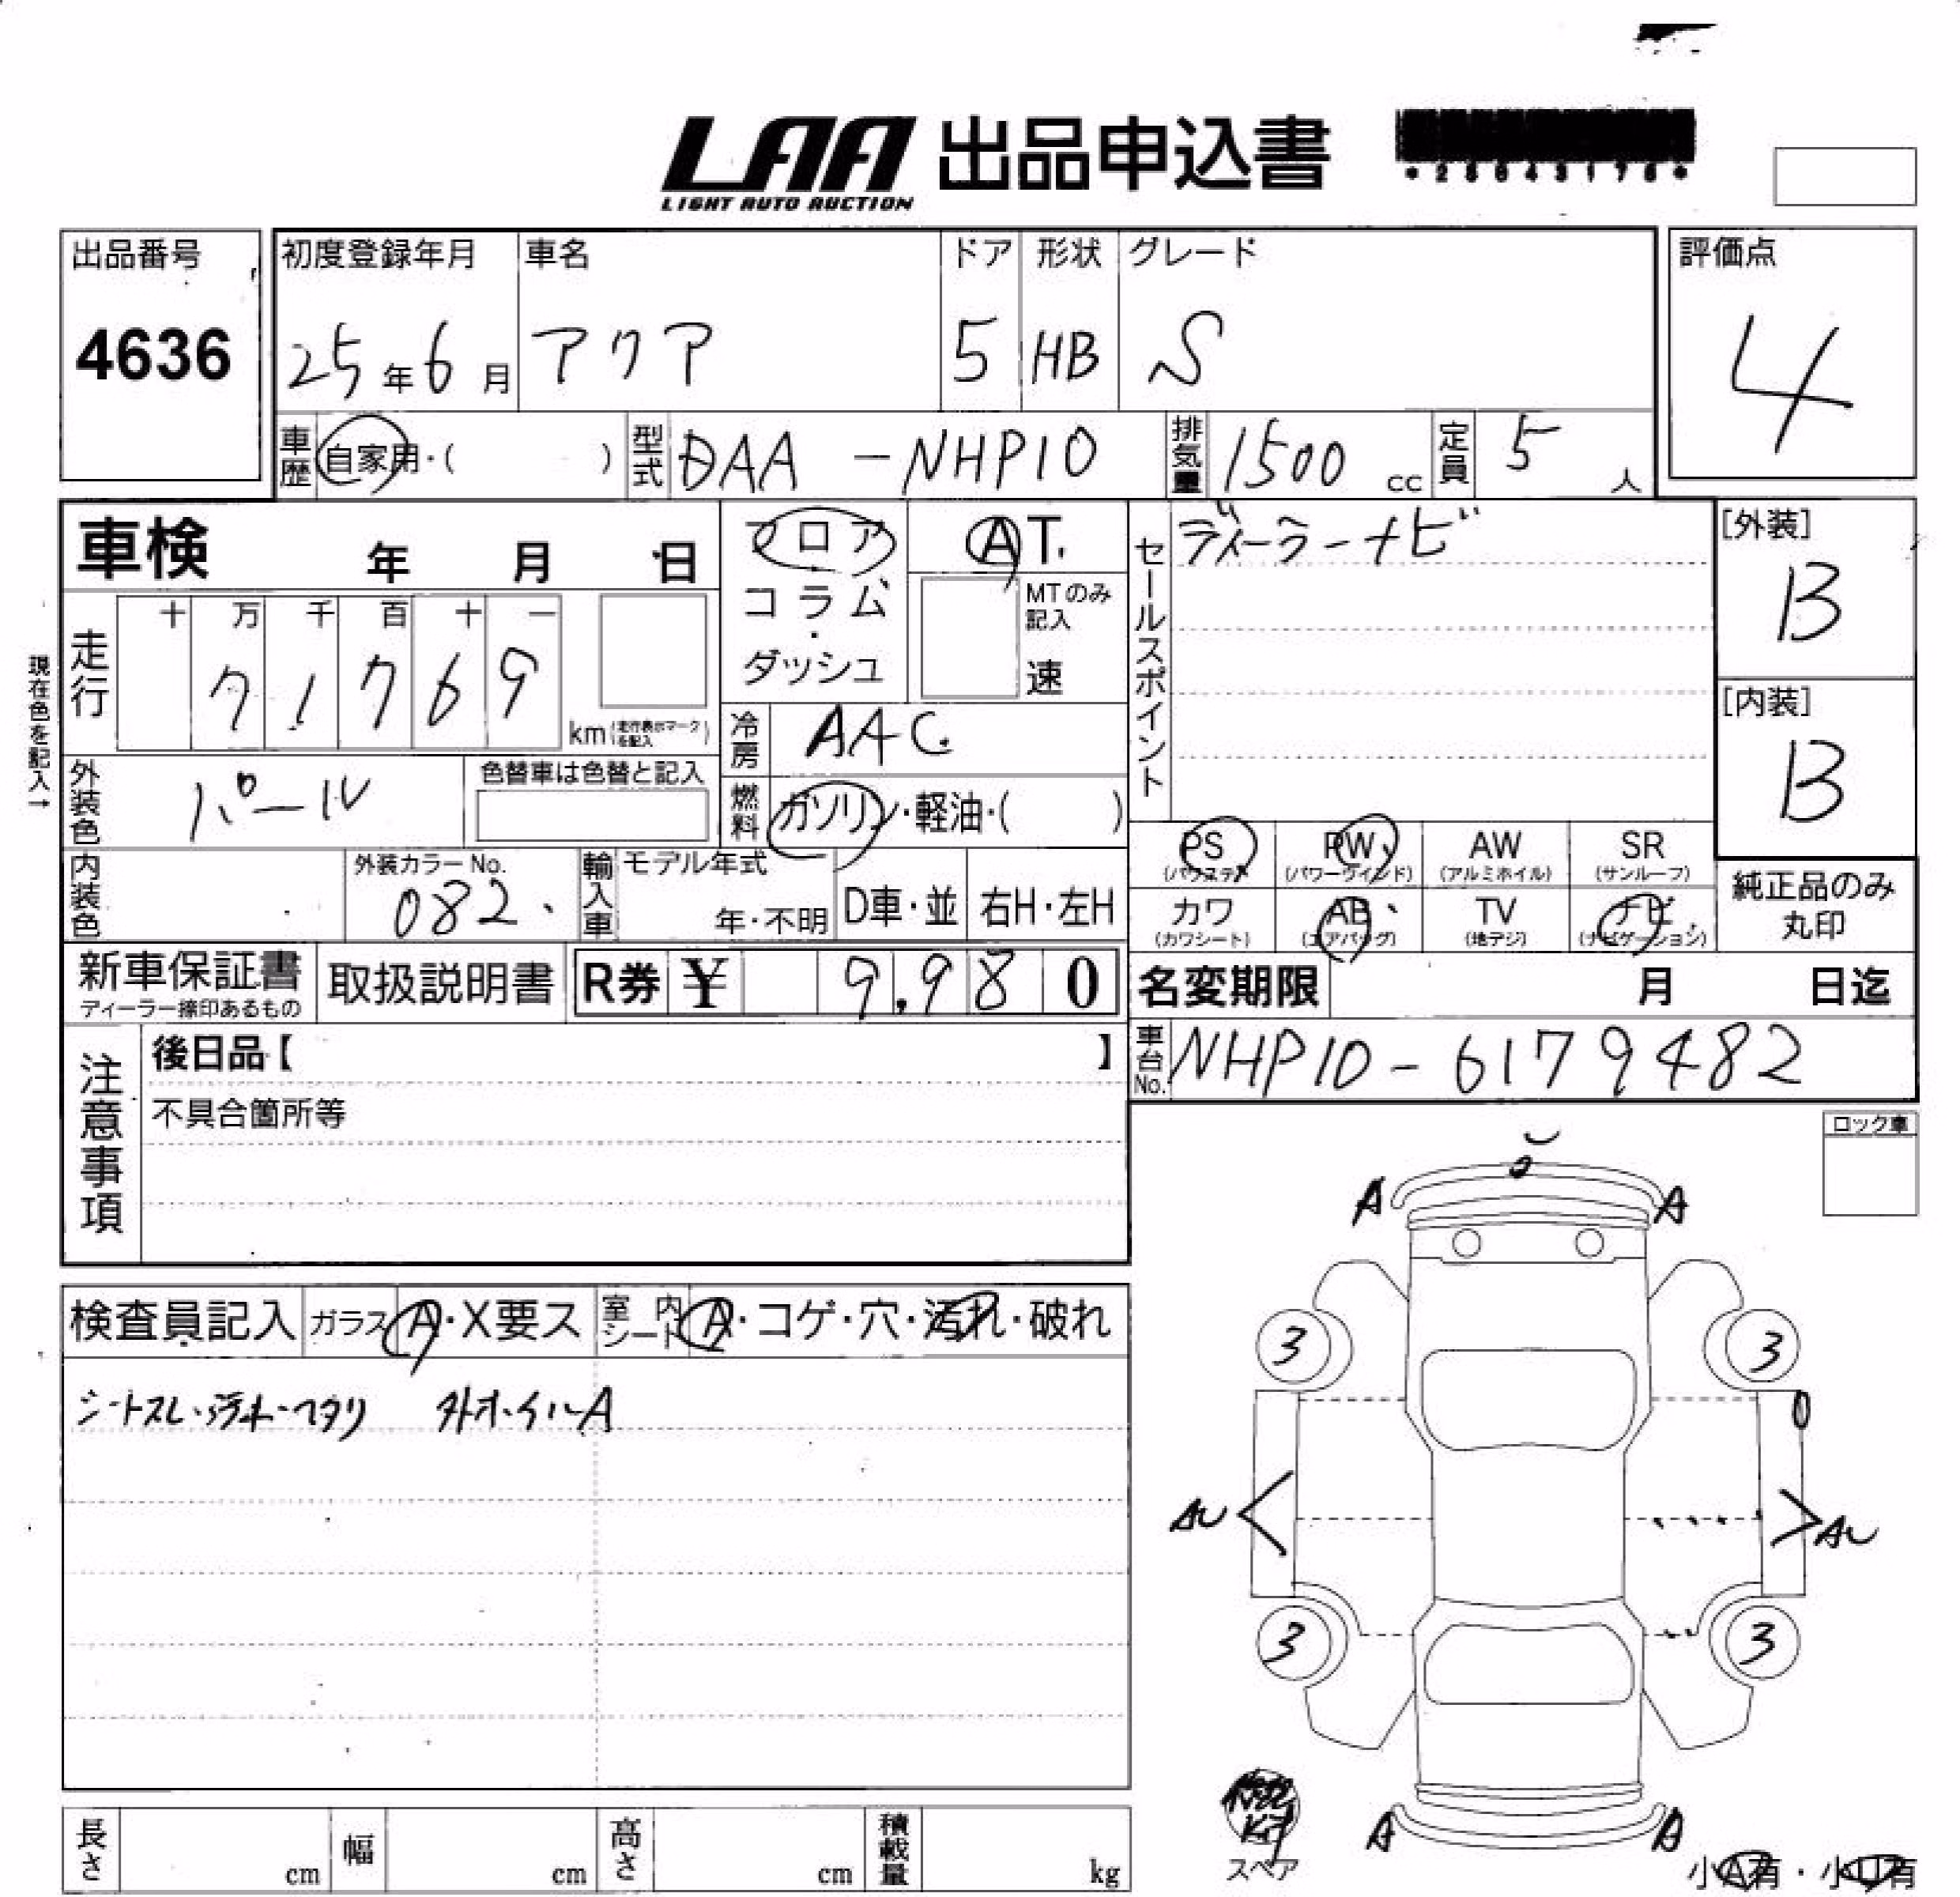 LAA 出品申込書
LIGHT AUTO AUCTION
出品番号 初度登録年月 車名 ドア 形状 グレード 評価点
4636 25年6月 アクア 5 HB S 4
車歴 自家用・( ) 型式 DAA-NHP10 排気量 1500 cc 定員 5 人
車検 年 月 日
フロア・コラム・ダッシュ
AT.
MTのみ記入
速
セールスポイント
ディーラーナビ
[外装]
B
[内装]
B
現在色を記入→
走行 十 万 千 百 十 一
7 1 7 6 9
km (走行表示マークを記入)
冷房 AAC
外装色 パール 色替車は色替と記入
燃料 ガソリン・軽油・( )
PS (パワステ) PW (パワーウィンド) AW (アルミホイル) SR (サンルーフ)
カワ (カワシート) AB (エアバッグ) TV (地デジ) ナビ (ナビゲーション)
純正品のみ
丸印
内装色 外装カラーNo. 082 輸入車 モデル年式 年・不明 D車・並 右H・左H
新車保証書 ディーラー捺印あるもの 取扱説明書 R券 ¥ 9,980
名変期限 月 日迄
車台No. NHP10-6179482
注意事項
後日品【 】
不具合箇所等
ロック車
A A
検査員記入 ガラス A・X要ス 室内シート A・コゲ・穴・汚れ・破れ
シートスレ・汚れ・ヘタリ 外ホイルA
3 3
AU AU
3 3
A A
Kit
スペア
小A有・小U有
長さ cm 幅 cm 高さ cm 積載量 kg